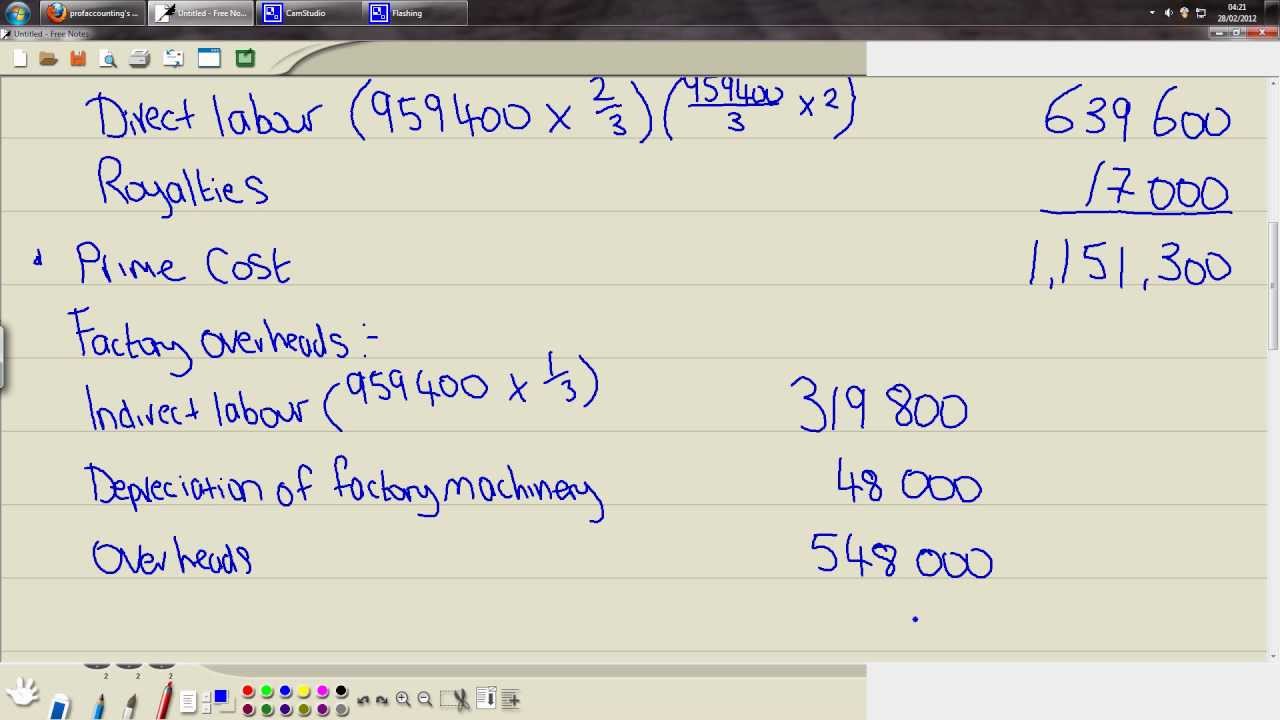 profaccounting's ... Untitled - Free No... CamStudio Flashing 04:21
28/02/2012
Untitled - Free Notes
Direct labour (959400 x 2/3) (959400/3 x 2) 639 600
Royalties 17 000
Prime Cost 1,151,300
Factory overheads :-
Indirect labour (959400 x 1/3) 319 800
Depreciation of factory machinery 48 000
Overheads 548 000
2 2 2